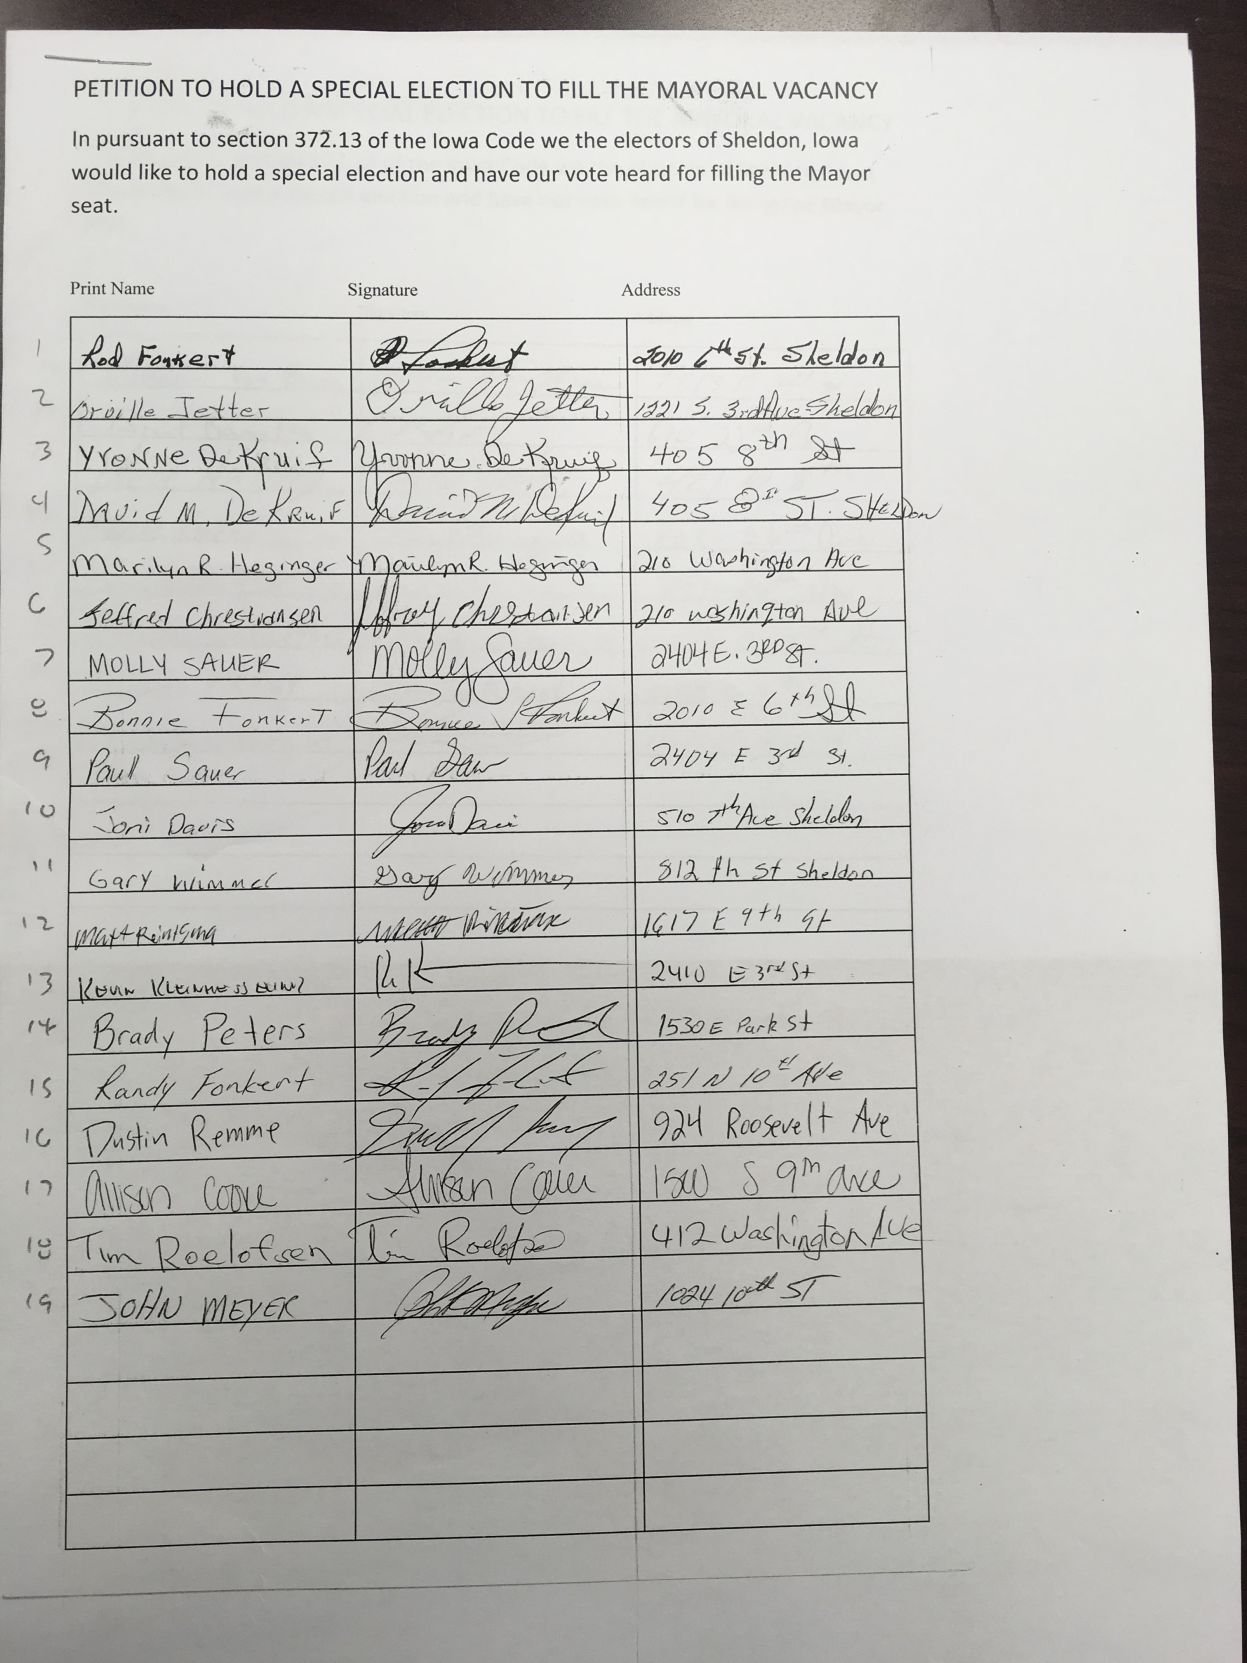 PETITION TO HOLD A SPECIAL ELECTION TO FILL THE MAYORAL VACANCY
In pursuant to section 372.13 of the Iowa Code we the electors of Sheldon, Iowa
would like to hold a special election and have our vote heard for filling the Mayor
seat.
Print Name Signature Address
1 Rod Fonkert Fonkert 2010 6th St. Sheldon
2 Orville Jetter Orville Jetter 1221 S. 3rd Ave Sheldon
3 YVONNE DeKruif Yvonne DeKruif 405 8th St
4 DAVID M. DeKRUIF David M DeKruif 405 8th ST. SHELDON
5 Marilyn R. Heginger Marilyn R. Heginger 210 Washington Ave
6 Jeffred Chrestiansen Jeffrey Christiansen 210 washington Ave
7 MOLLY SAUER Molly Sauer 2404 E. 3RD ST.
8 Bonnie FonkerT Bonnie Fonkert 2010 E 6th St
9 Paul Sauer Paul Sauer 2404 E 3rd St.
10 Joni Davis Joni Davis 510 7th Ave Sheldon
11 Gary Wimmer Gary Wimmer 812 th St Sheldon
12 Matt Reintsma 1617 E 9th St
13 KEVIN 2410 E 3rd St
14 Brady Peters Brady 1530 E Park St
15 Randy Fonkert 251 N 10th Ave
16 Dustin Remme 924 Roosevelt Ave
17 Allison Allison S 9th ave
18 Tim Roelofsen Tim Roelofsen 412 Washington Ave
19 JOHN MEYER 1024 10th ST